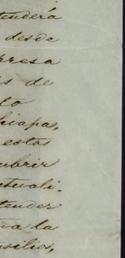 tenderá
desde
presa
s de
lo
hiapas,
estos
cubrir
ntuali-
tender
tra la
nsilios,